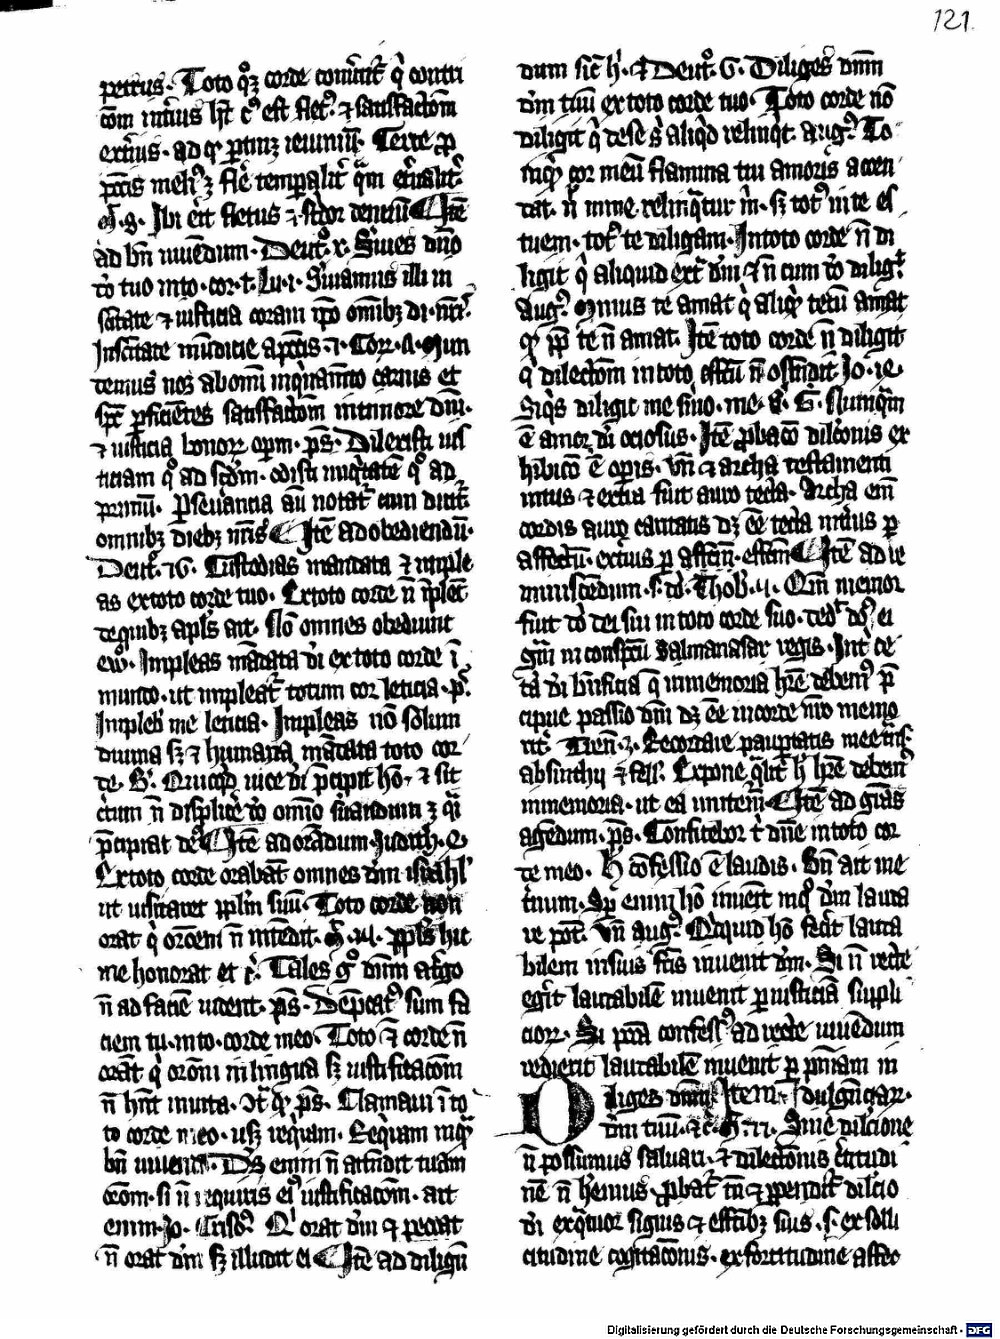 121
petrus. Toto q̊ꝫ corde conv̄tit̄ q̄ contri
exti⁹. ad qꝫ ꝑtinꝫ ieiuniū. Certe ꝓ
Ibi erit fletus ⁊ stridor dentiū Itē
ad bn̄ viuēdum. Deut.̊ x. Suies dn̄o
d̄o tuo in to. cor. t. Lu. i. Suiamus illi in
sc̄itate ⁊ iusticia coram ip̄o omībꝫ di. nr̄is.
In sc̄itate mūdicie a pctīs
demus nos ab omī inq̄nam̄to carnis et
sp̄c ꝑficiētes
⁊ iusticia bonoꝝ opm. ps̄. Dilexisti ius
ticiam qͦ ad scd̄m. odisti iniq̄tatē qͦ ad
primū. ꝑseuerancia aū notat̄ cum dicit̄
omnibꝫ diebꝫ nr̄is Itē ad obediendū.
Deut.̊ 26. Custodias mandata ⁊ imple
as ex toto corde tuo. Ex toto corde n̄ īplēt
de quibꝫ apl̄s ait. Nō omnes obediunt
ew̄. Impleas mādata di ex toto corde ī
mundo. ut impleat̄ totum cor leticia. ps̄.
Impleb̄ me leticia. Impleas nō solum
diuina sꝫ ⁊ humana mādata toto cor
de. B. Quicqͥd vice di p̄cipit hō, ⁊ sit
c̄tum n̄ displic̄e dō om̄io
p̄cipiat de⁹ Itē ad orādum. Judith. 4
Ex toto corde orabāt omnes dn̄m isrl̄
ut visitaret ppl̄m suū. Toto corde non
orat q̄ orōem n̄ intēdit. ppl̄s hic
me honorat et c̄. Tales gͦ dn̄m a t̄go
n̄ ad faciē vident. ps̄. Dep̄cat⁹ sum fa
ciem tu. in to. corde meo. Toto ⁊ corde n̄
orāt q̄ orōm in lingua sꝫ iustificacōm
n̄ hn̄t in vita. ps̄. Clamaui ī to
to corde meo. iusꝫ reqͥram. Reqͥram
bn̄ viuendi. Ds̄ enim n̄ attēdit tuam
orōm. si n̄ requiris ei⁹ iustificacōm. ait
enim. Jo. Criso⁹. Qͥ orat dm̄ ⁊ peccat
n̄ orat dm̄ sꝫ illudit ei Itē ad diligē
dum sic̄ h̄. ⁊ Deut.̊ 6. Diliges dn̄m
dm̄ tuū ex toto corde tuo. Toto corde nō
diligit q̄ de se s̄ aliqͥd relinqͥt. aug⁹. To
tuqꝫ cor meū flamma tui amoris accen
dat. n̄ in me relinq̄tur m̄. sꝫ tot⁹ in te es
tuem. tot⁹ te diligam. In toto corde n̄ di
ligit q̄ aliquid ext̄ dm̄ ⁊ n̄ cum dō diliḡt
Aug⁹. Minus te amat q̄ aliqͥd tecū amat
qͥ ꝓpt̄ te n̄ amat. Itē toto corde n̄ diligit
q̄ dilectōm in toto eff̄ctū n̄ ostendit Jo. 14.
Siqͥs diligit me s̄mo. me. s̄. G. Nunqͣm
ē amor di ociosus. Itē ꝓbacō dilcōnis ex
hibicō ē opis. vn̄ ⁊ archa testamenti
intus ⁊ extra fuit auro tecta. Archa em̄
cordis auro caritatis dꝫ ēe tecta interius ꝑ
affectū. exterius ꝑ Itē ad re
miniscēdum. s. dō. Thob. 1. Qm̄ memor
fuit dō dei sui in toto corde suo. ded̄ do⁹ ei
gr̄am in conspc̄tu Salmanasar regis. Int̄ ce
ta di bn̄ficia q̄ in memoria hr̄e debem⁹ p̄
cipue passio dn̄i dꝫ ēe in corde nr̄o memo
rit̄. Tren. 3. Recordare paupertatis mee
absinthij ⁊ fell̄. Expone qͣlit̄ h̄ hr̄e debem⁹
in memoria. ut ea imitem̄. Itē ad gr̄as
agendum. ps̄. Confitebor t̄ dn̄e in toto cor
de meo. h̄ cōfessio ē laudis. vn̄ ait me
t̄num. Sp enim hō inueīt inqꝫ dm̄ lauda
re pot̄. vn̄ aug⁹. Qͥcquid hō fec̄it lauda
bilem in suis fctīs inuenit dm̄. Si n̄ recte
eḡit laudabilē inuenit ꝑ iusticiā suppli
cioꝝ. Si pctā confess⁹ ad recte viuēdum
redierit laudabilē inuenit ꝑ pn̄iam in
Diliges dn̄m Item Indulgn̄ciar.
dm̄ tuū. ⁊c. Sine dilcione
n̄ possumus saluari. ⁊ dilectōnis c̄titudi
nē n̄ hēmus
di ex qͣtuor signis ⁊ eff̄ctibꝫ suis. s. ex solli
citudine cogitacōnis. ex fortitudine affec
Digitalisierung gefördert durch die Deutsche Forschungsgemeinschaft - DFG